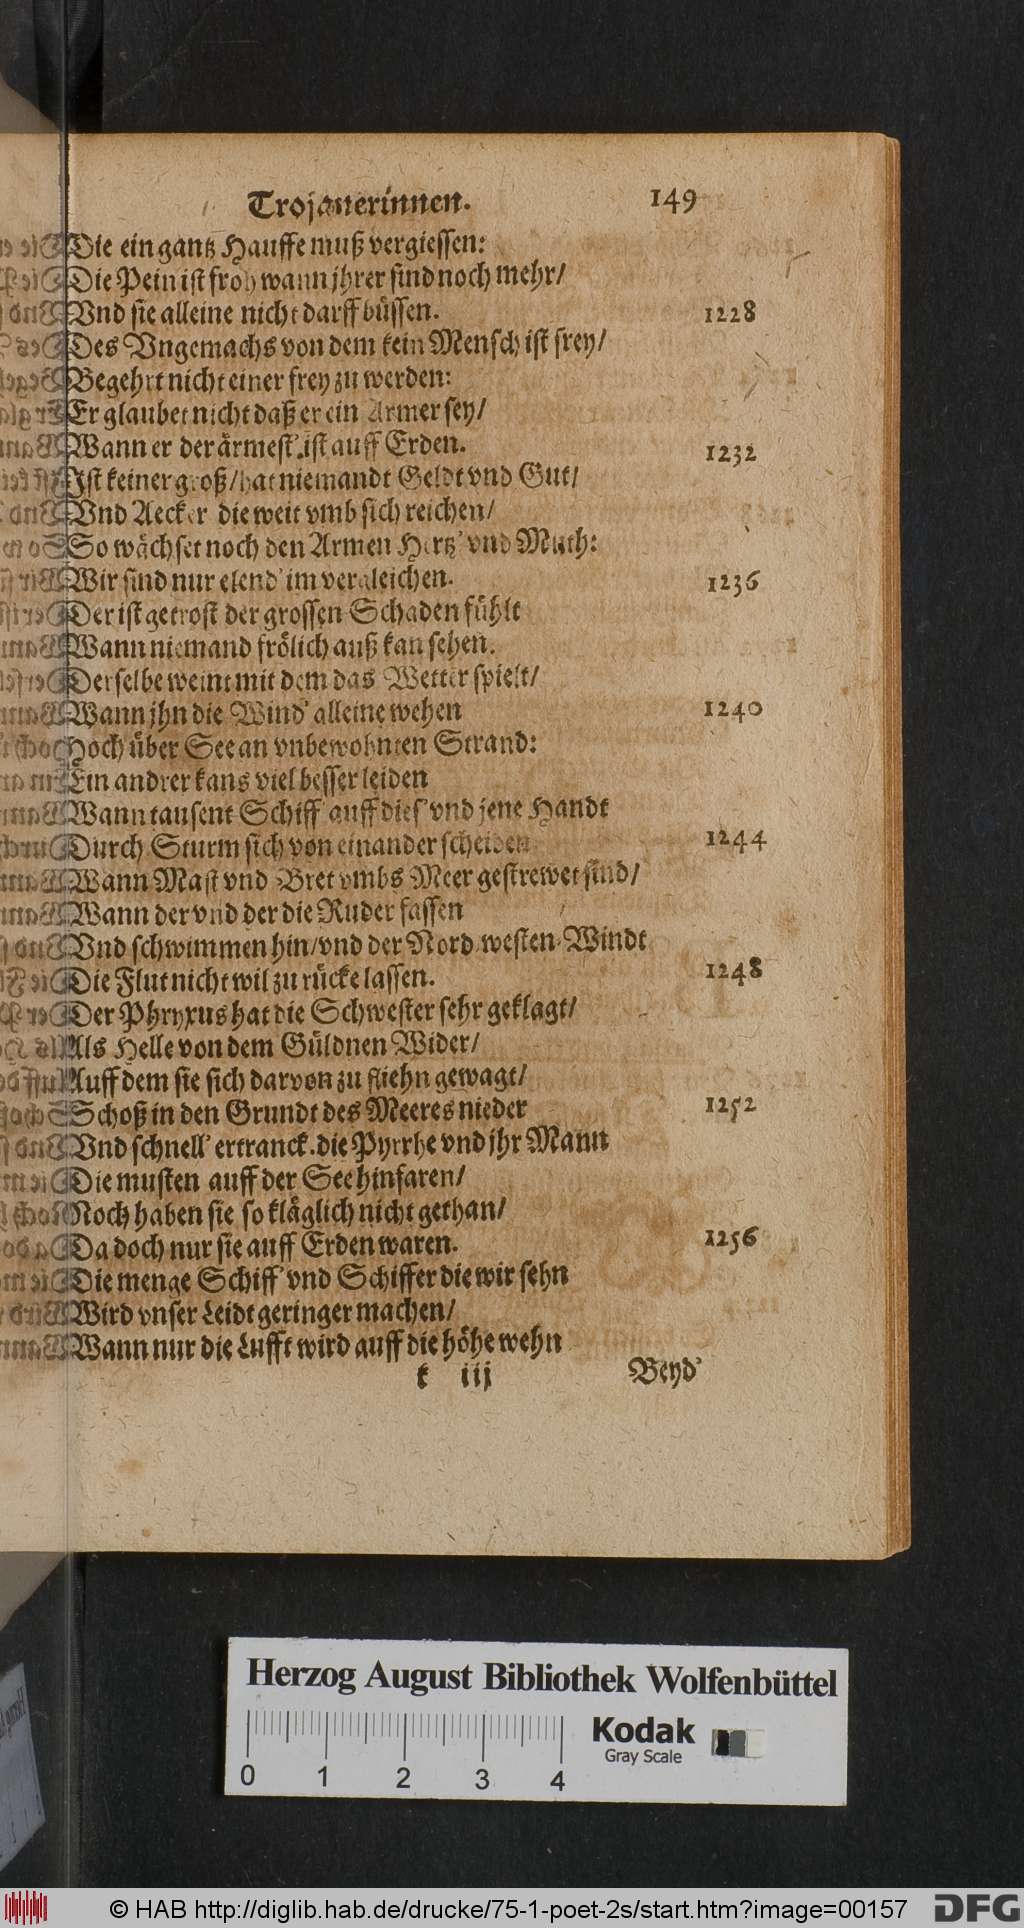 Trojanerinnen. 149
Die ein gantz Hauffe muß vergiessen:
Die Pein ist froh wann jhrer sind noch mehr/
Vnd sie alleine nicht darff büssen. 1228
Des Vngemachs von dem kein Mensch ist frey/
Begehrt nicht einer frey zu werden:
Er glaubet nicht daß er ein Armer sey/
Wann er der ärmest' ist auff Erden. 1232
Ist keiner groß/ hat niemandt Geldt vnd Gut/
Vnd Aecker die weit vmb sich reichen/
So wächset noch den Armen Hertz' vnd Muth:
Wir sind nur elend' im vergleichen. 1236
Der ist getrost der grossen Schaden fühlt
Wann niemand frölich auß kan sehen.
Derselbe weint mit dem das Wetter spielt/
Wann jhn die Wind' alleine wehen 1240
Hoch über See an vnbewohnten Strand:
Ein andrer kans viel besser leiden
Wann tausent Schiff' auff dies' vnd jene Handt
Durch Sturm sich von einander scheiden 1244
Wann Mast vnd Bret vmbs Meer gestrewet sind/
Wann der vnd der die Ruder fassen
Vnd schwimmen hin/ vnd der Nord-westen-Windt
Die Flut nicht wil zu rücke lassen. 1248
Der Phryxus hat die Schwester sehr geklagt/
Als Helle von dem Güldnen Wider/
Auff dem sie sich darvon zu fliehn gewagt/
Schoß in den Grundt des Meeres nieder 1252
Vnd schnell' ertranck. die Pyrrhe vnd jhr Mann
Die musten auff der See hinfaren/
Noch haben sie so kläglich nicht gethan/
Da doch nur sie auff Erden waren. 1256
Die menge Schiff' vnd Schiffer die wir sehn
Wird vnser Leidt geringer machen/
Wann nur die Lufft wird auff die höhe wehn
k iij Beyd'
Herzog August Bibliothek Wolfenbüttel
Kodak
Gray Scale
0 1 2 3 4
© HAB http://diglib.hab.de/drucke/75-1-poet-2s/start.htm?image=00157 DFG